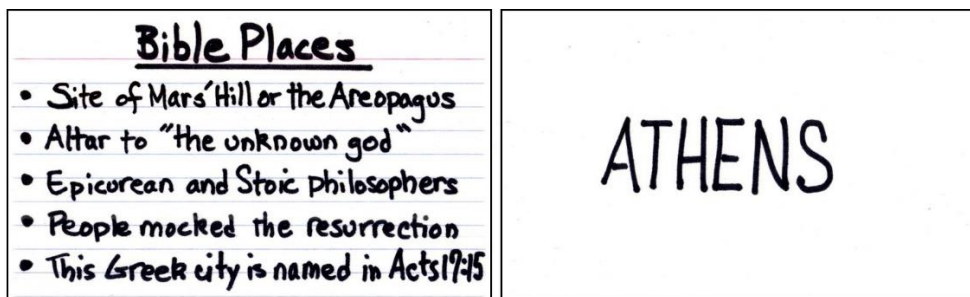 Bible Places
• Site of Mars' Hill or the Areopagus
• Altar to "the unknown god"
• Epicurean and Stoic philosophers
• People mocked the resurrection
• This Greek city is named in Acts 17:15
ATHENS